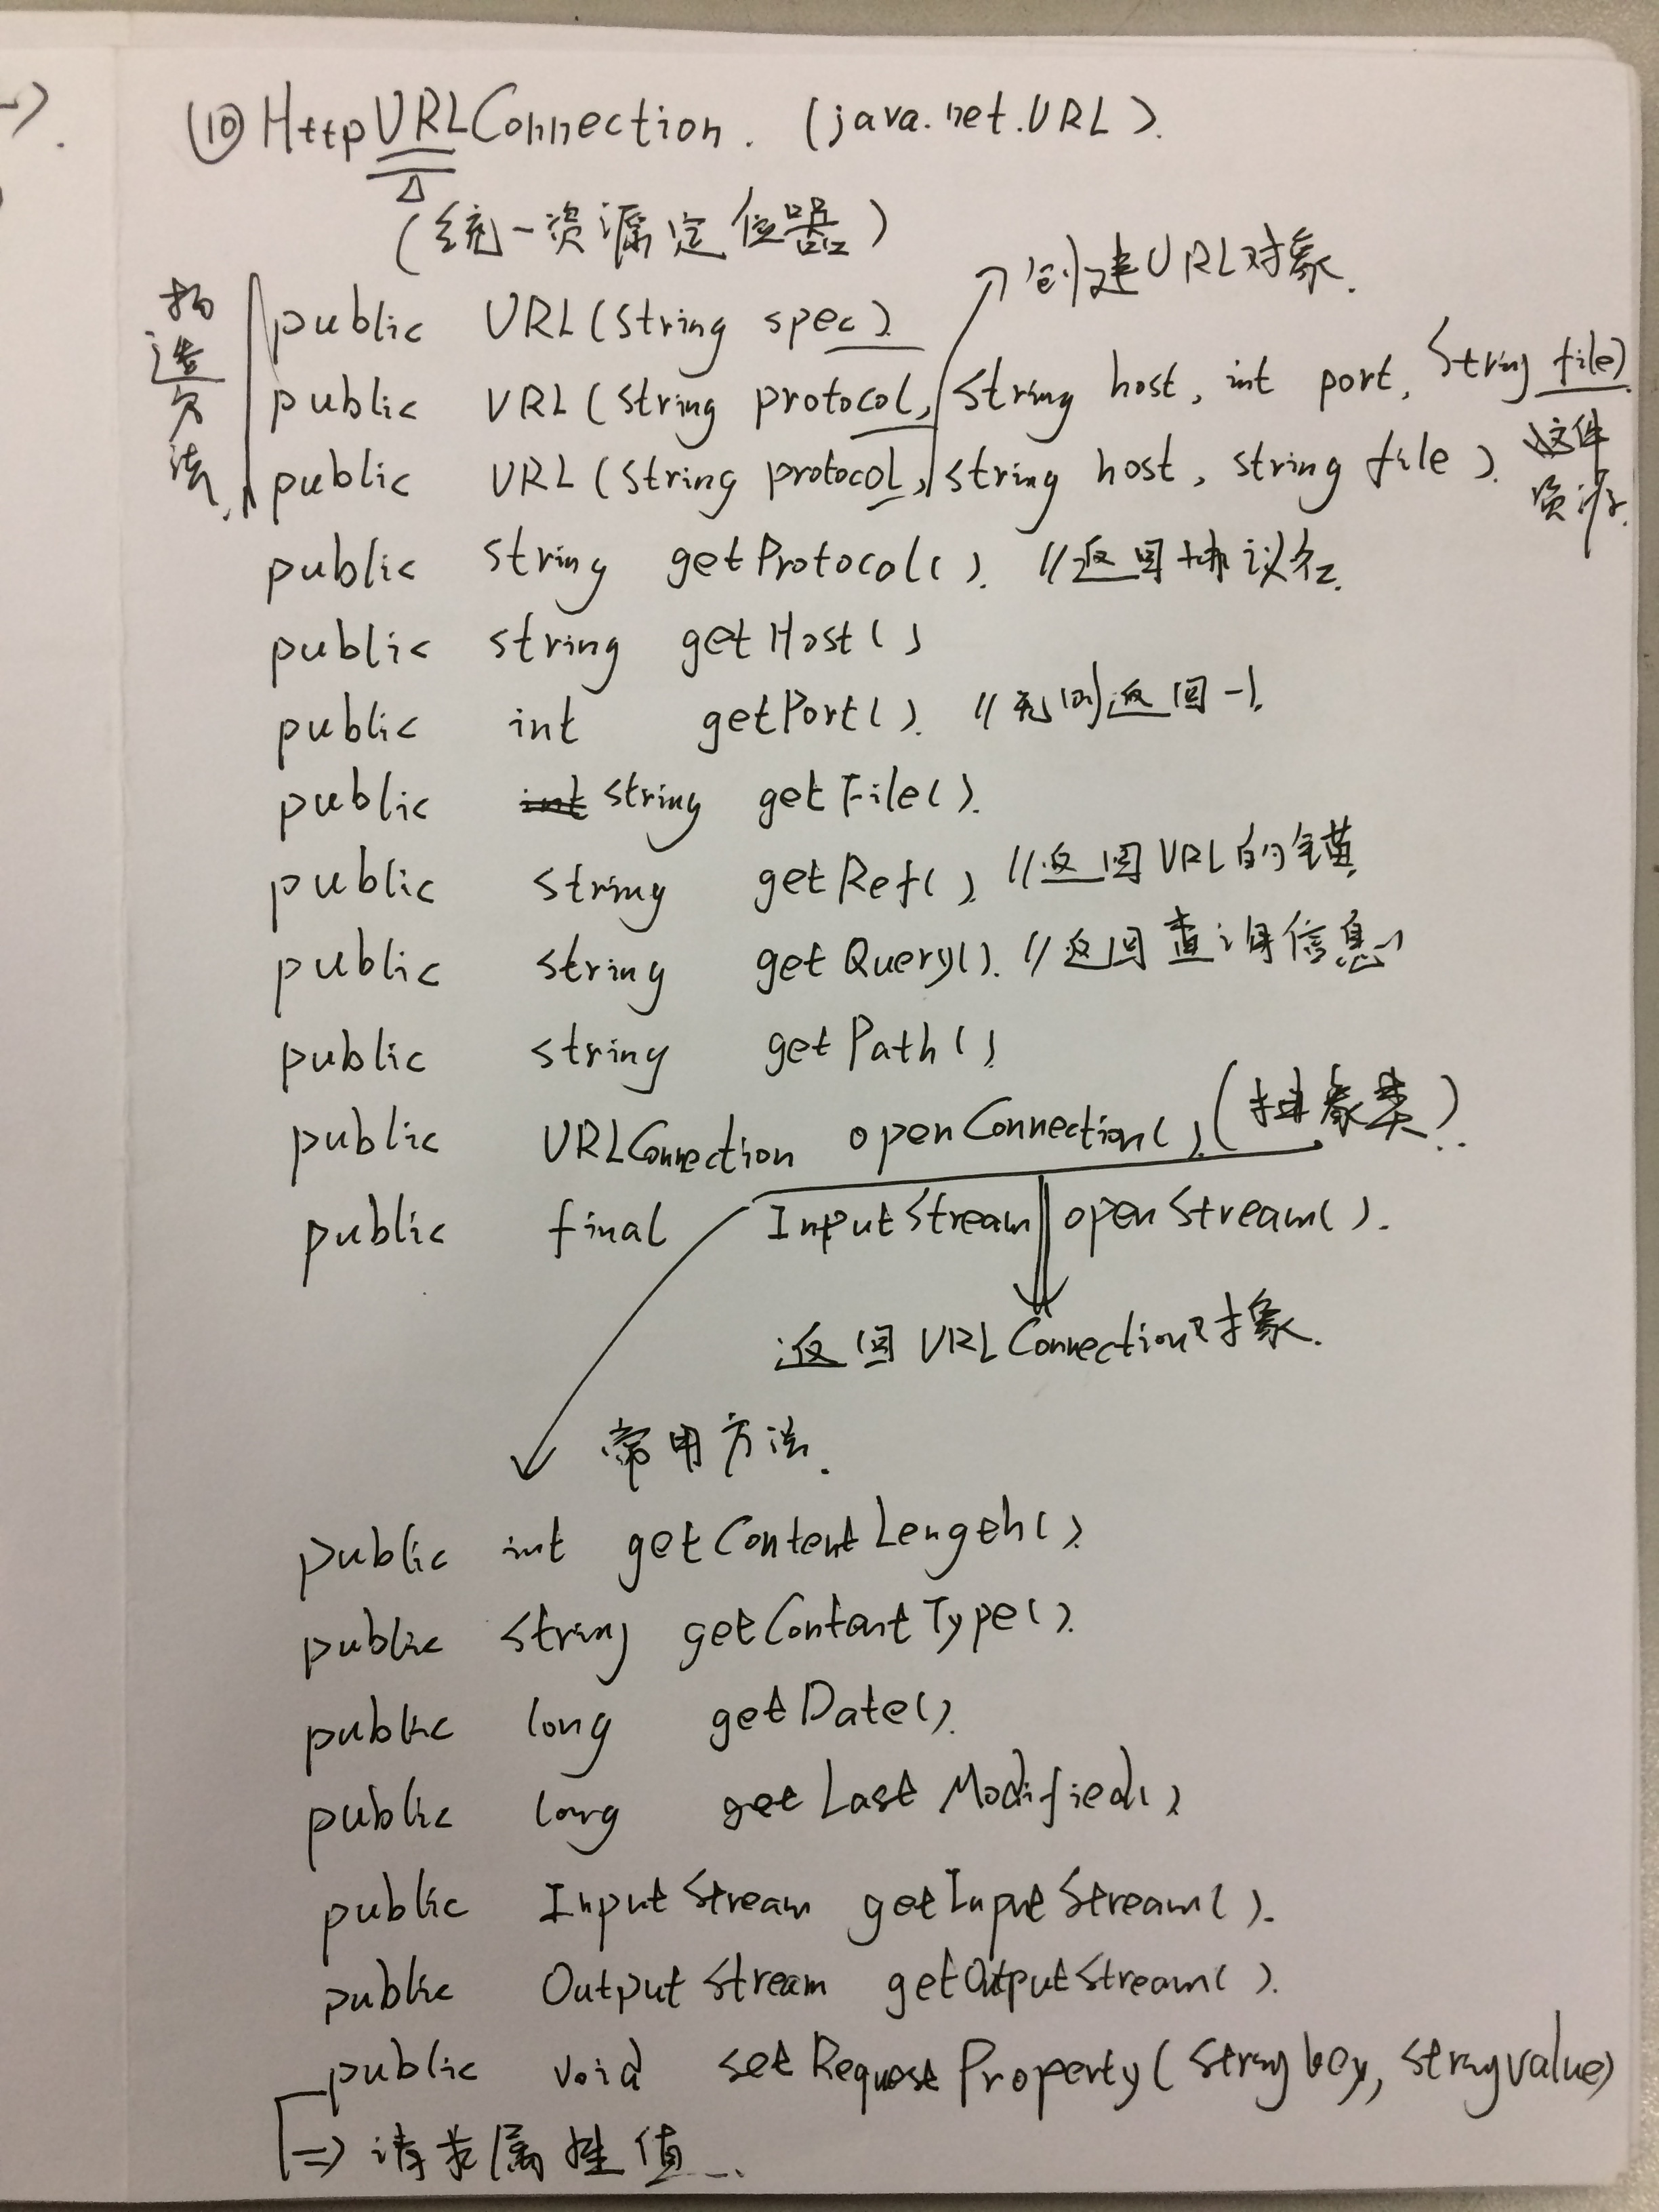 ⑩HttpURLConnection. (java.net.URL).
(统一资源定位器)
创建URL对象.
构造方法.
public URL(String spec).
public URL(String protocol, String host, int port, String file).
public URL(String protocol, string host, string file).
文件资源.
public string getProtocol(). //返回协议名.
public string getHost()
public int getPort(). //无则返回-1.
public int string getFile().
public string getRef(). //返回URL的锚.
public string getQuery(). //返回查询信息
public string getPath()
public URLConnection openConnection().(抽象类).
public final InputStream openStream().
返回URLConnection对象.
常用方法.
public int getContentLength().
public String getContentType().
public long getDate().
public long getLastModified()
public InputStream getInputStream().
public OutputStream getOutputStream().
public void setRequestProperty(String key, string value)
=> 请求属性值...